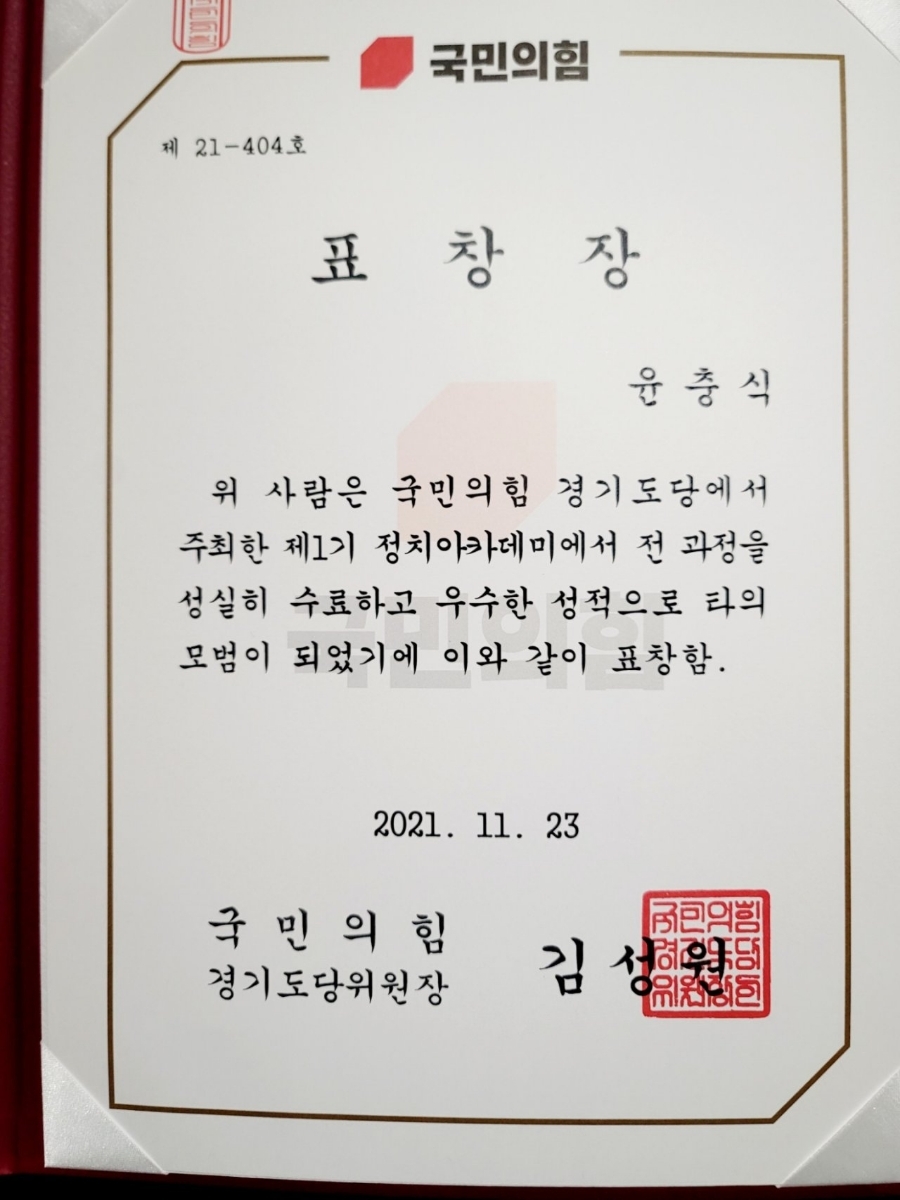 국민의힘
제 21-404호
표 창 장
윤 충 식
위 사람은 국민의힘 경기도당에서
주최한 제1기 정치아카데미에서 전 과정을
성실히 수료하고 우수한 성적으로 타의
모범이 되었기에 이와 같이 표창함.
국민의힘
2021. 11. 23
국 민 의 힘
경기도당위원장 김 성 원